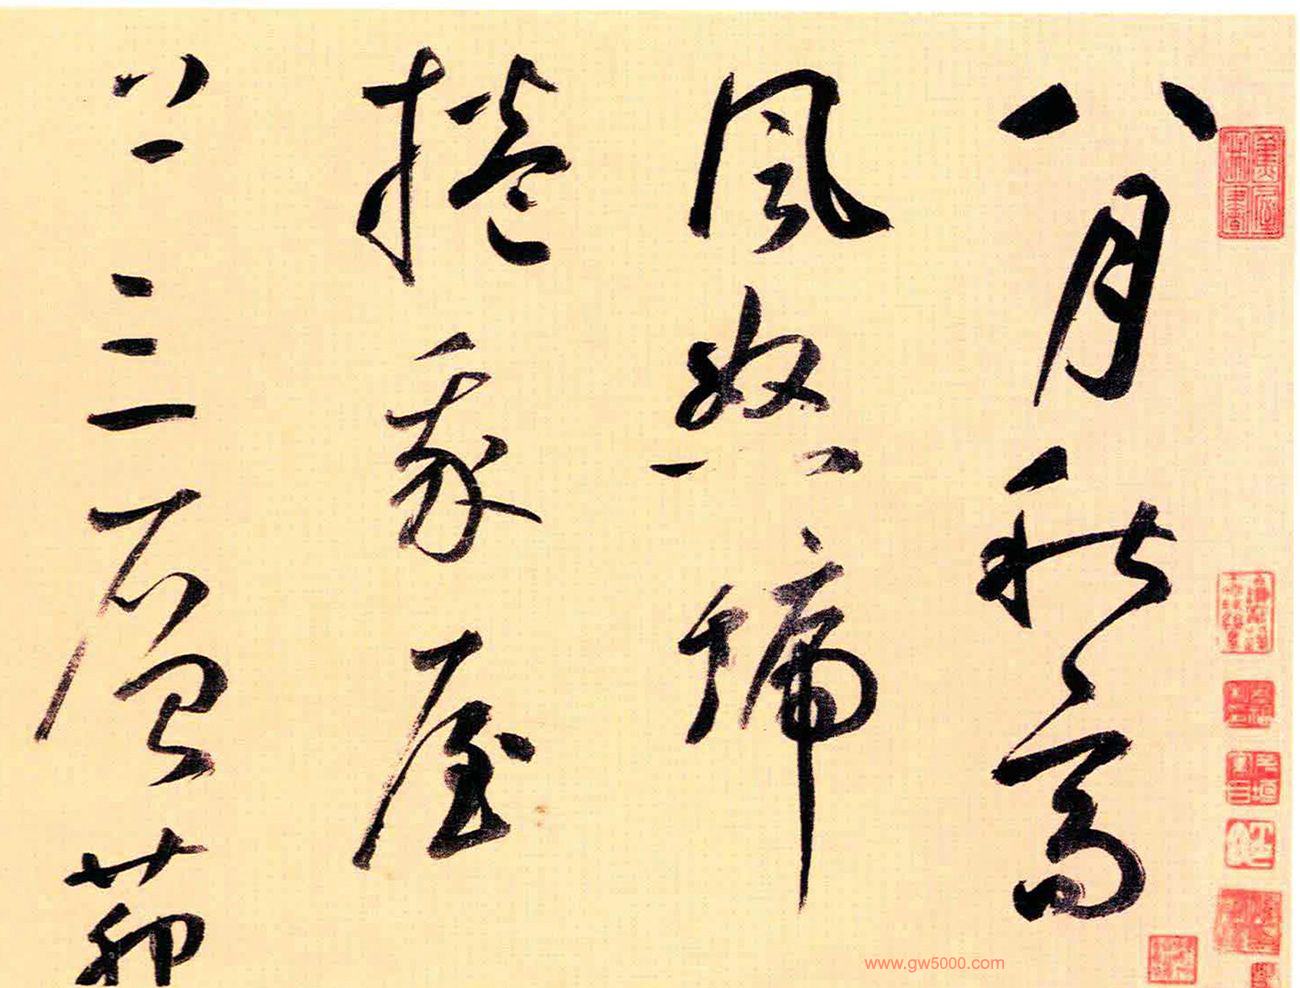 八月秋高
風怒號
捲我屋
上三層茆
www.gw5000.com